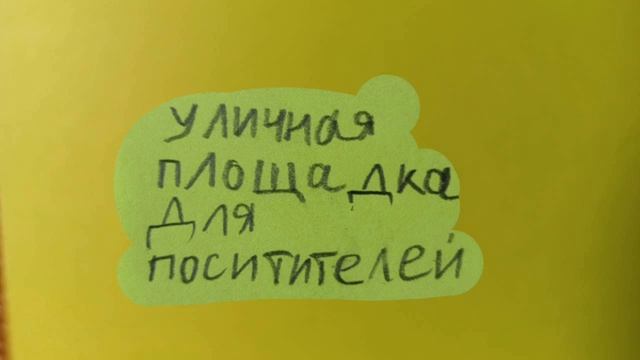 уличная
площадка
для
поситителей